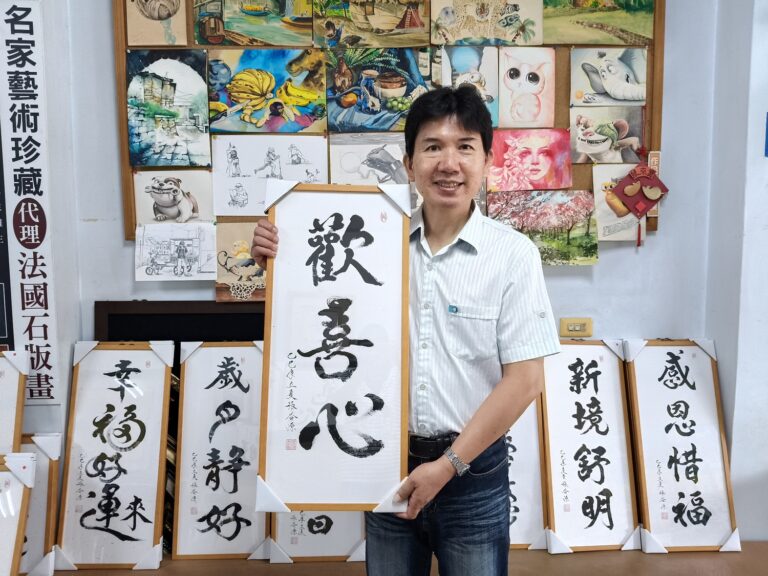 名家藝術珍藏代理法國石版畫
幸福好運來
歲月靜好
歡喜心
乙巳年立夏
新境舒明
感恩惜福